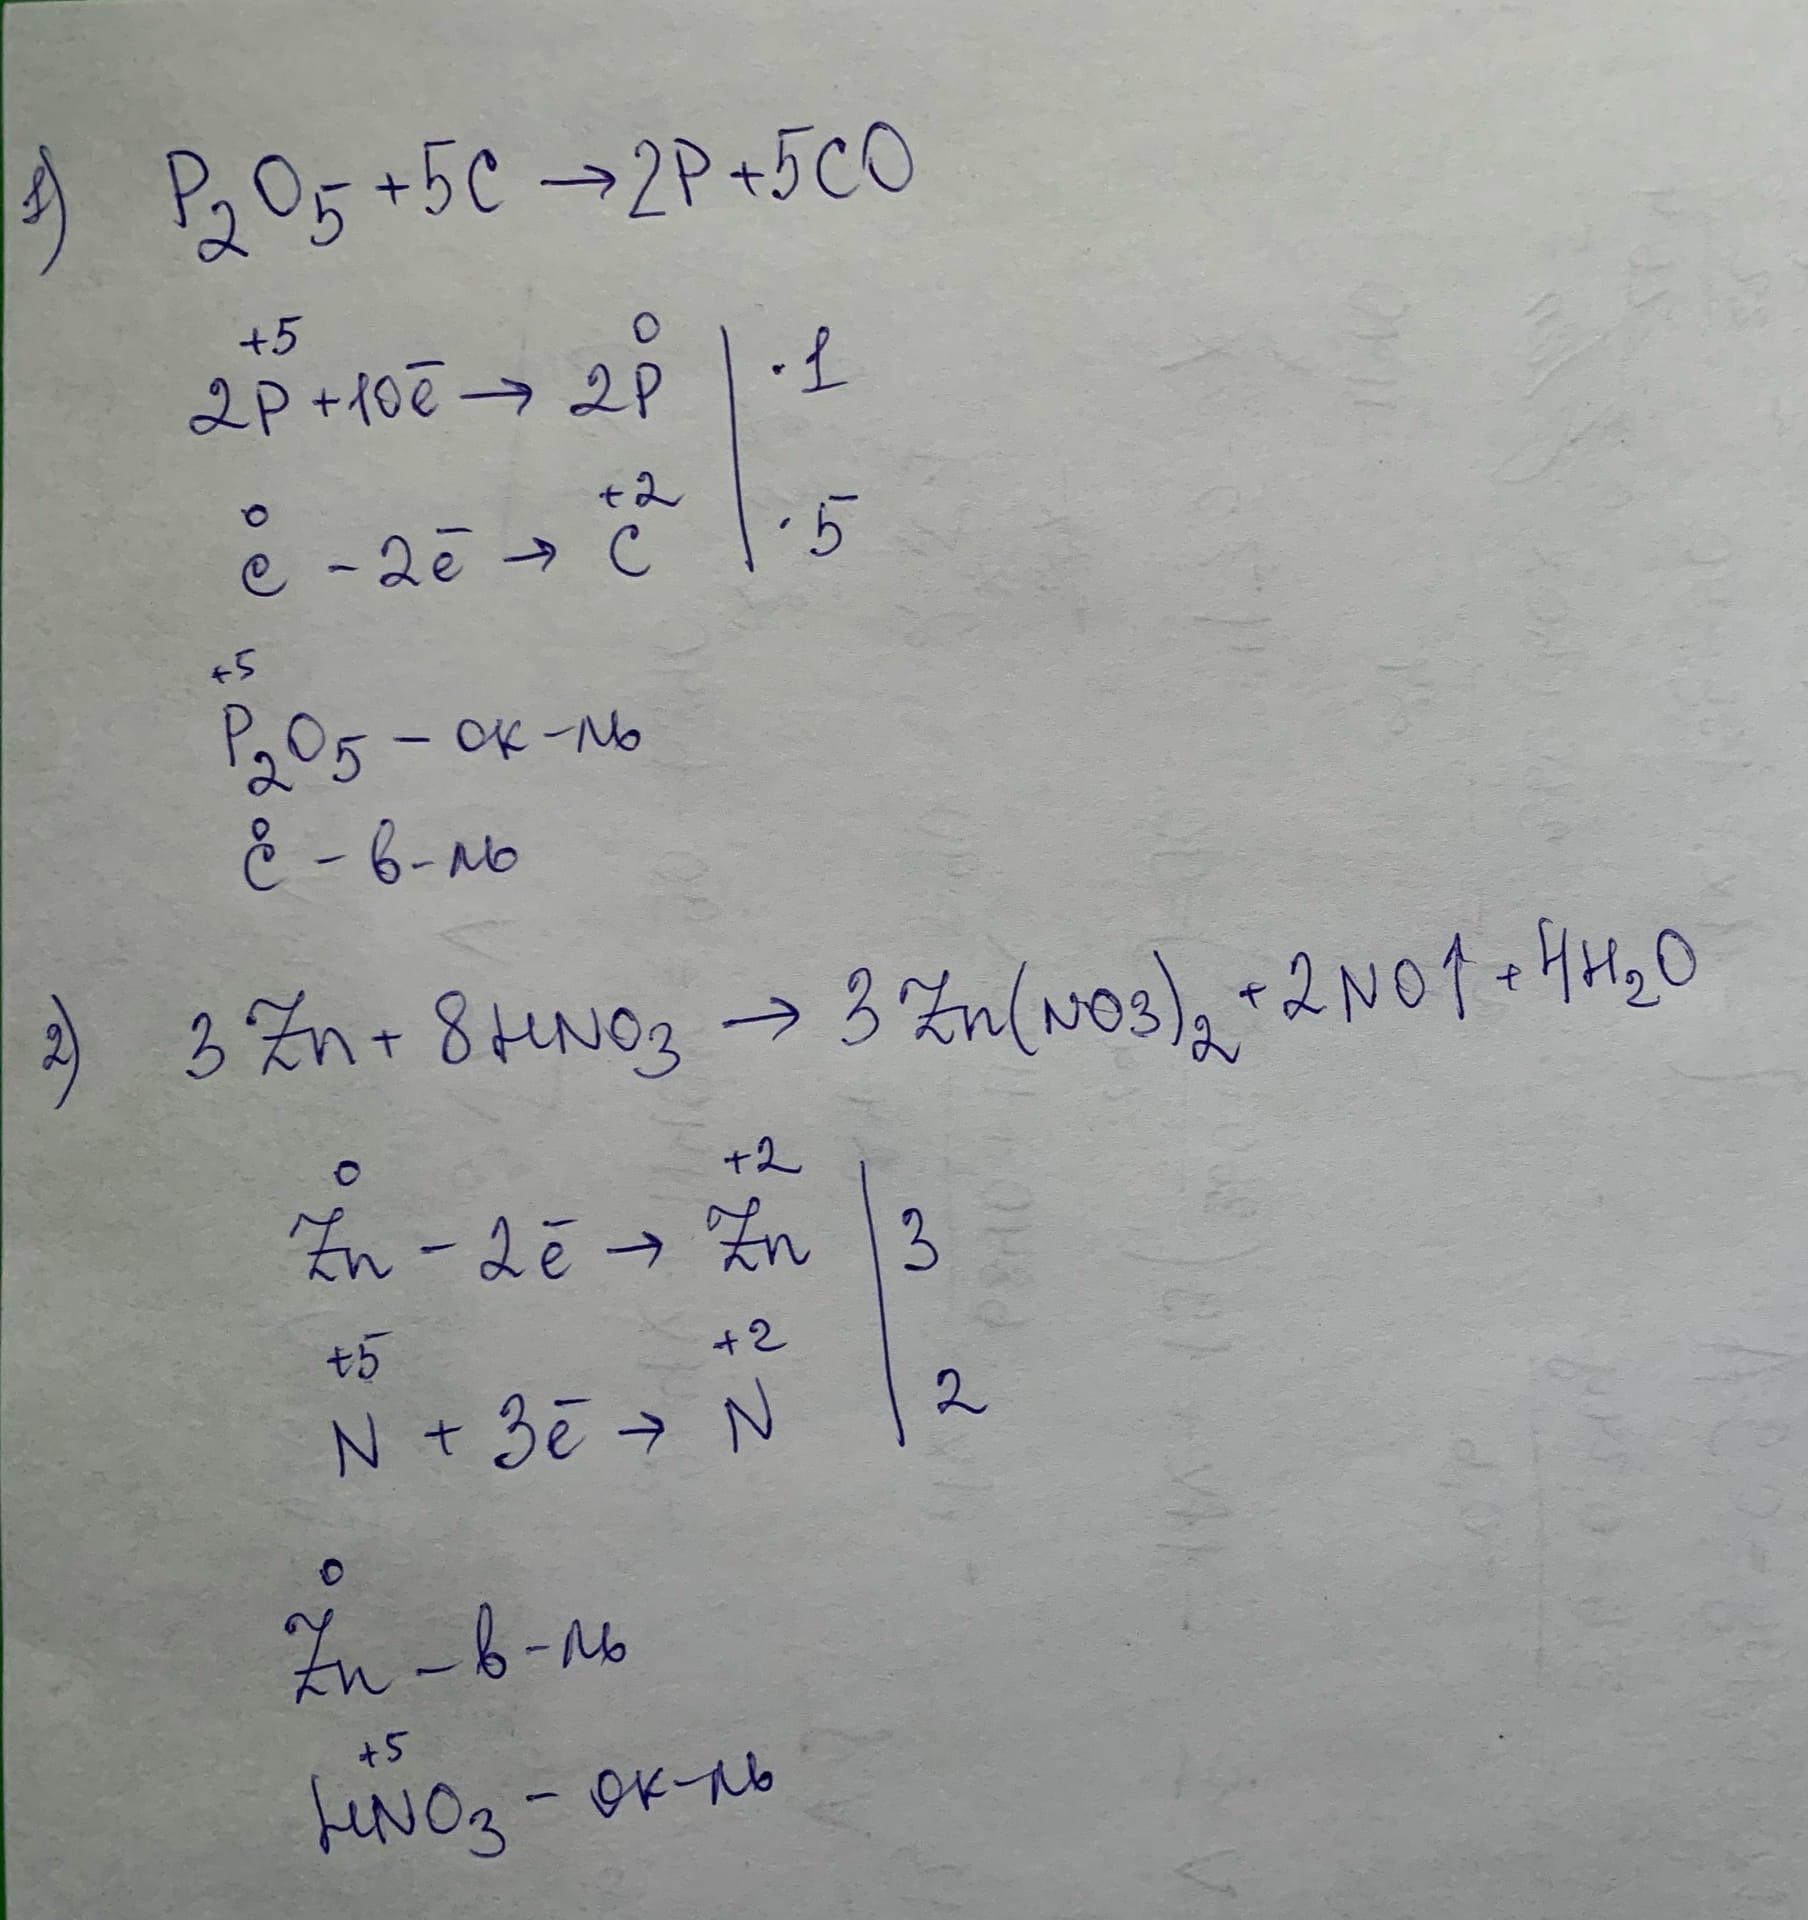 1) P₂O₅ + 5C → 2P + 5CO
+5 0
2P + 10ē → 2P | ·1
0 +2
C - 2ē → C | ·5
+5
P₂O₅ - ок-ль
0
C - в-ль
2) 3Zn + 8HNO₃ → 3Zn(NO3)₂ + 2NO↑ + 4H₂O
0 +2
Zn - 2ē → Zn | 3
+5 +2
N + 3ē → N | 2
0
Zn - в-ль
+5
HNO₃ - ок-ль